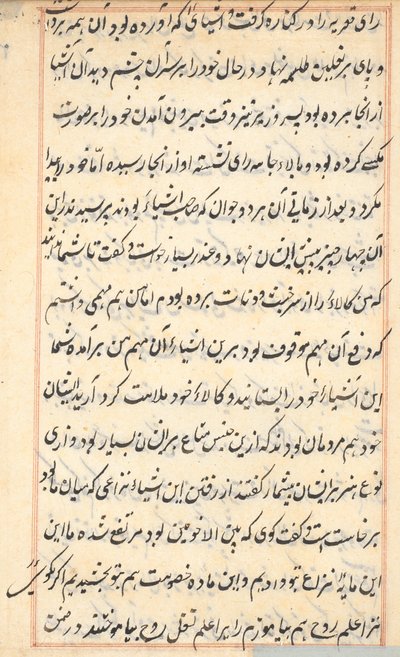 رای قنوجیه را در کناره گرفت و اشیای که آورده بود آن همه برداشت
و پای بر نعلین طلسمه نهاد در حال خود را بر سر آن چشم دید آن اشیا
از انجا برده بود پسر وزیر نیز وقت بیرون آمدن خود را بر صورت
مکسے کرده بود و بالاء جامه رای نشسته او از انجا رسیده اما خود را پیدا
نکرد و بعد از زمانی آن هر دو جوان که صاحب اشیاء بودند پرسیدند این
آن چهار چیز پیش ایشان نهاد و عذر بسیار خواست و گفت تا شما بدانید
که من کالاء را از سر خبث و دنائت برده بودم اما من هم مهمی داشتم
که دفع آن مهم موقوف بود برین اشیاء آن مهم من برآمده شما
این اشیاء خود را بستانید و کالاء خود ملامت کرد آرید ایشان
خود هم مردمان بودند که ازین جنس متاع بر ایشان بسیار بود و ازی
نوع هنر بر ایشان بیشمار گفتند از رفتن این اشیاء نزاعی که میان ما بود
برخاست است و گفت کوی که بین الاخوین بود مرتفع شده ما این
این مایهٔ نزاع بتو دادیم و این ماده خصومت هم بتو بخشیدیم اکر بکوئی
ترا علم روح هم بیاموزم را برا علم نقل روح بیاموختند در ضمن